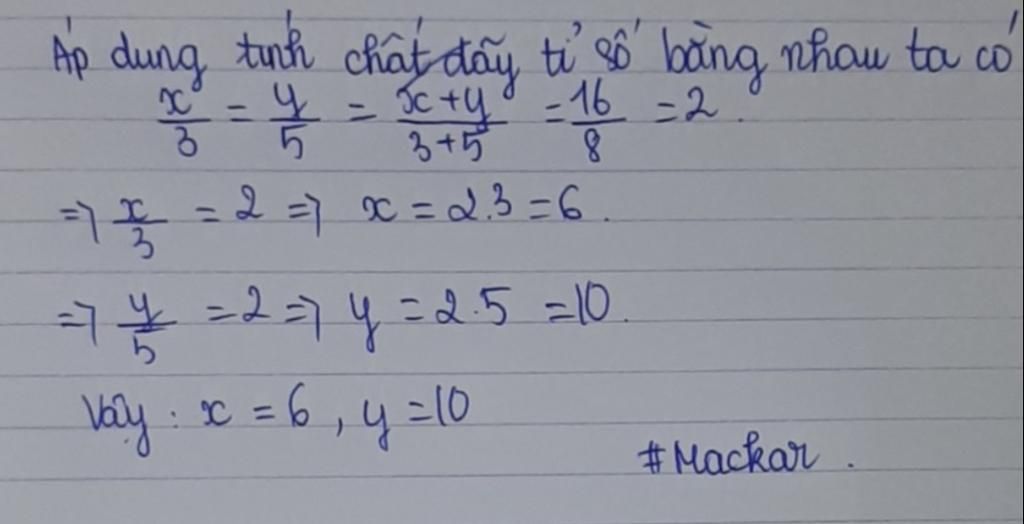 Áp dụng tính chất dãy tỉ số bằng nhau ta có
x/3 = y/5 = x+y/3+5 = 16/8 = 2.
=> x/3 = 2 => x = 2.3 = 6.
=> y/5 = 2 => y = 2.5 = 10.
Vậy : x = 6 , y = 10
#Mackar .